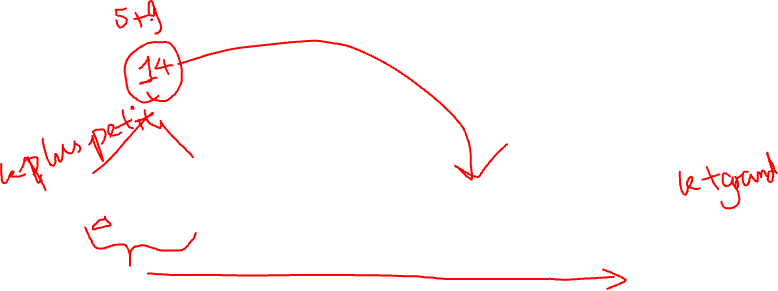 5+9
14
le plus petit
le + grand